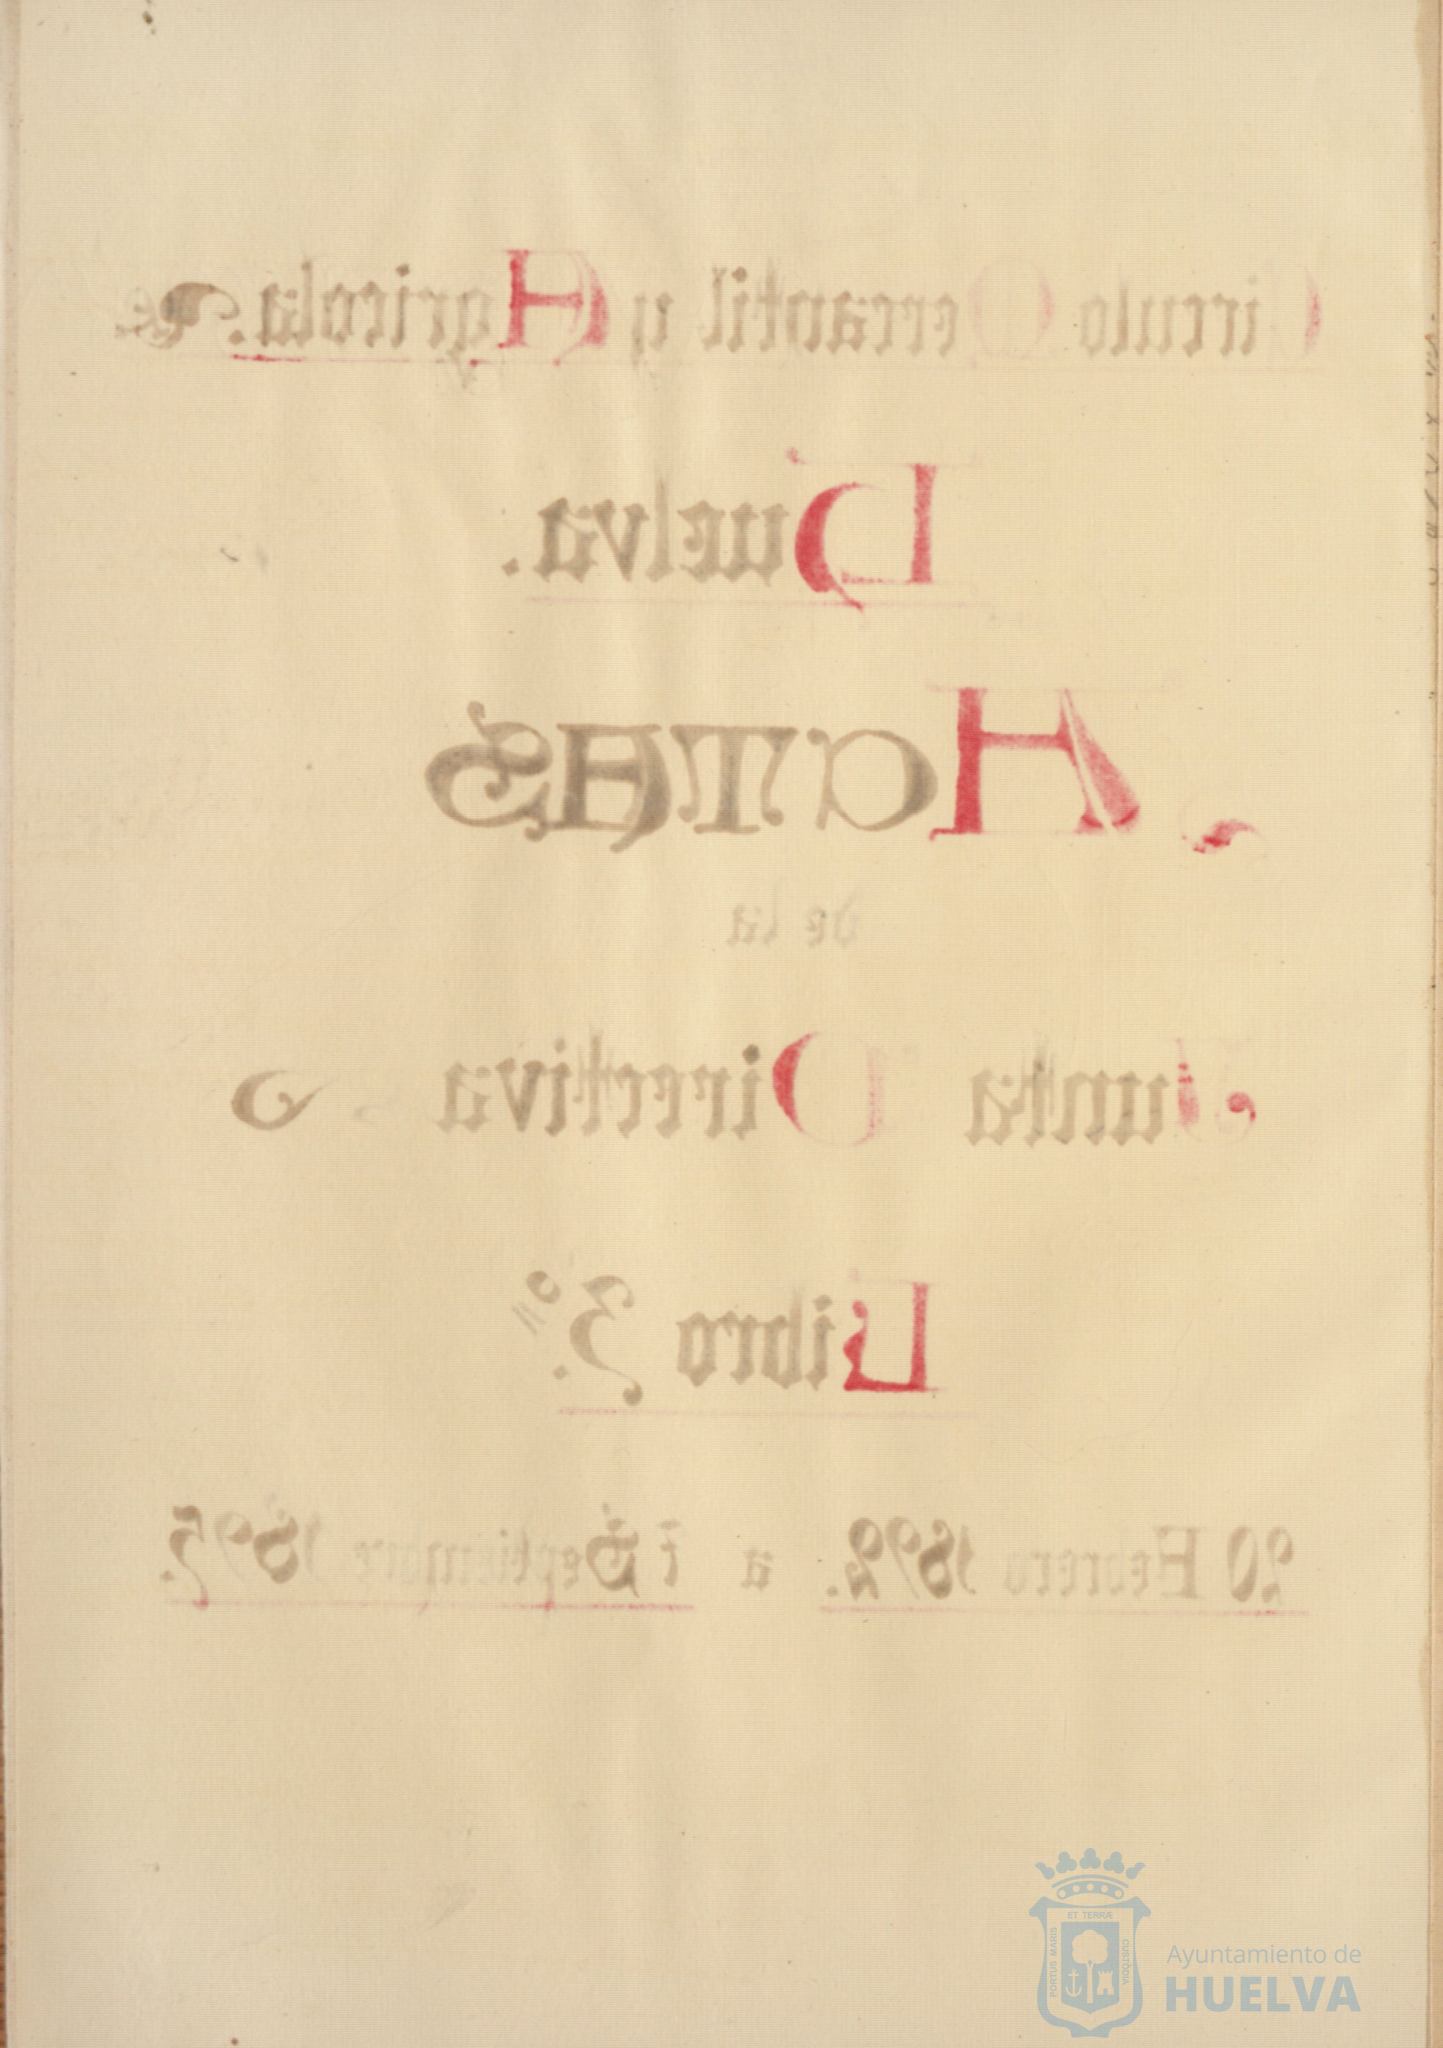 Circulo Mercantil y Agricola. de
Huelva.
ACTAS
de la
Junta Directiva
Libro 3º.
20 Febrero 1892. a 7 Septiembre 1895.
ET TERRÆ
PORTUS MARIS
CUSTODIA
Ayuntamiento de
HUELVA